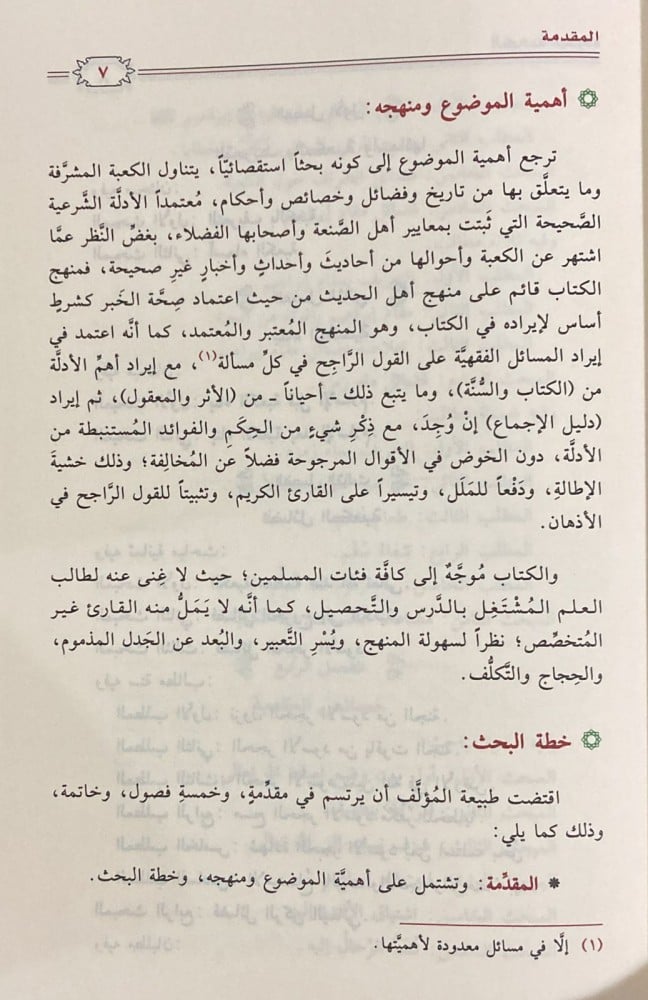 المقدمة
٧
أهمية الموضوع ومنهجه:
ترجع أهمية الموضوع إلى كونه بحثاً استقصائيّاً، يتناول الكعبة المشرَّفة
وما يتعلَّق بها من تاريخ وفضائل وخصائص وأحكام، مُعتمداً الأدلَّة الشَّرعية
الصَّحيحة التي ثَبتت بمعايير أهل الصَّنعة وأصحابها الفضلاء، بغضِّ النَّظر عمَّا
اشتهر عن الكعبة وأحوالها من أحاديثَ وأحداثٍ وأخبارٍ غيرِ صحيحة، فمنهج
الكتاب قائم على منهج أهل الحديث من حيث اعتماد صِحَّة الخَبر كشرطٍ
أساس لإيراده في الكتاب، وهو المنهج المُعتبر والمُعتمد، كما أنَّه اعتمد في
إيراد المسائل الفقهيَّة على القول الرَّاجِح في كلِّ مسألة(١)، مع إيراد أهمِّ الأدلَّة
من (الكتاب والسُّنَّة)، وما يتبع ذلك ـ أحياناً ـ من (الأثر والمعقول)، ثم إيراد
(دليل الإجماع) إنْ وُجِدَ، مع ذِكْرِ شيءٍ من الحِكَمِ والفوائد المُستنبطة من
الأدلَّة، دون الخوض في الأقوال المرجوحة فضلاً عن المُخالِفة؛ وذلك خشيةَ
الإطالةِ، ودَفْعاً للمَلَل، وتيسيراً على القارئ الكريم، وتثبيتاً للقول الرَّاجح في
الأذهان.
والكتاب مُوجَّهٌ إلى كافَّة فئات المسلمين؛ حيث لا غِنى عنه لطالب
العلم المُشْتَغِل بالدَّرس والتَّحصيل، كما أنَّه لا يَمَلُّ منه القارئ غير
المُتخصِّص؛ نظراً لسهولة المنهج، ويُسْرِ التَّعبير، والبُعد عن الجَدل المذموم،
والحِجاج والتَّكلُّف.
خطة البحث:
اقتضت طبيعة المُؤلَّف أن يرتسم في مقدِّمةٍ، وخمسةِ فصول، وخاتمة،
وذلك كما يلي:
* المقدِّمة: وتشتمل على أهميَّة الموضوع ومنهجه، وخطة البحث.
(١) إلَّا في مسائل معدودة لأهميَّتها.